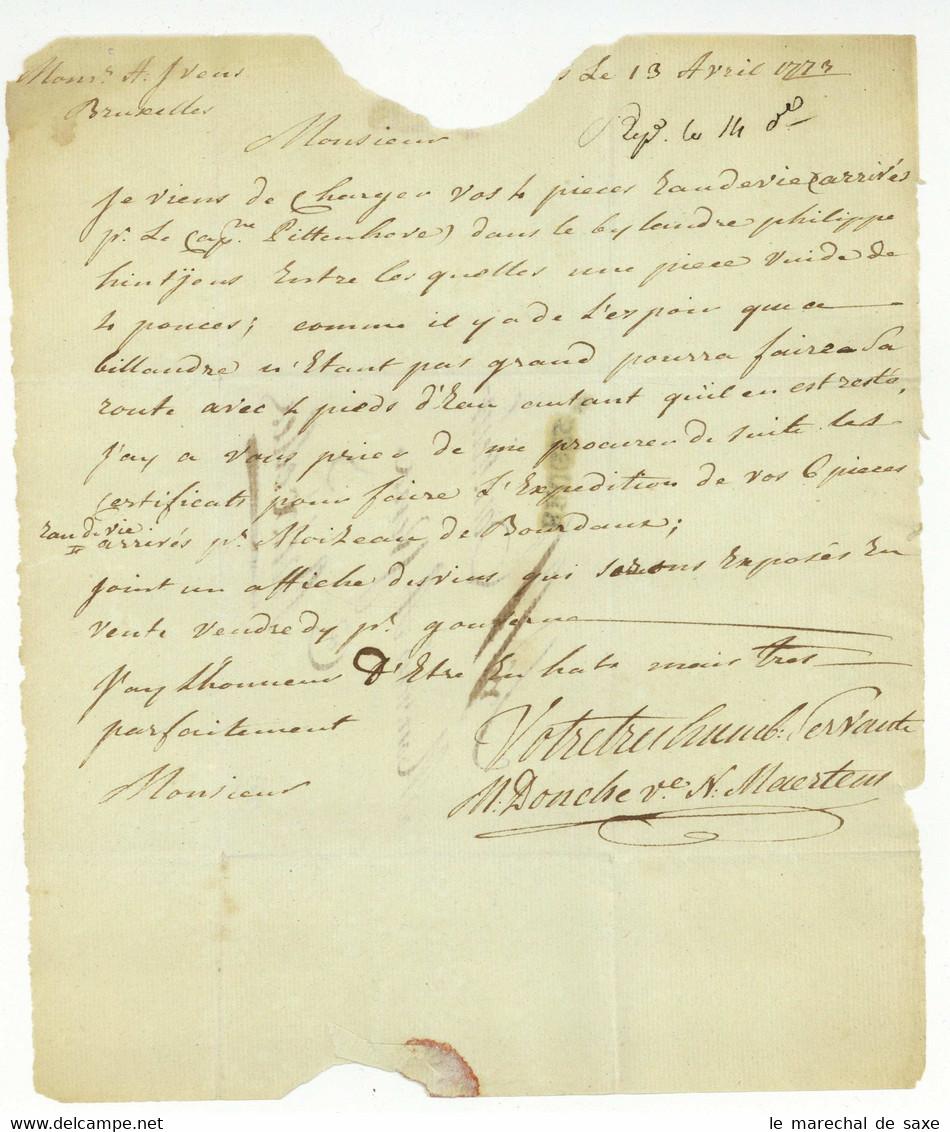 Monsr. A. Jvens
Bruxelles
s Le 13 Avril 1773
Monsieur
Rep. le 14 do
Je viens de Charger vos 4 pieces Eaudevie (arrivés
pr. Le Capne. Pittenhove) dans le bylandre philippe
hintjens Entre les quelles une piece vuide de
4 pouces; comme il y a de L'espoir que ce
billandre n'Etant pas grand pourra faire Sa
route avec 4 pieds d'Eau autant qu'il en est resté,
J'ay a vous prier de me procurer de suite les
Certificats pour faire L'Expedition de vos 6 pieces
Eaudevie
arrivés pr. Moizeau de Bourdaux;
Joint un affiche des vins qui serons Exposés En
vente vendredy pr. gouverne
J'ay Lhonneur D'Etre En hate mais tres
parfaitement
Votre tres humb: Servante
Monsieur
M. Donche ve. N. Maertens
le marechal de saxe